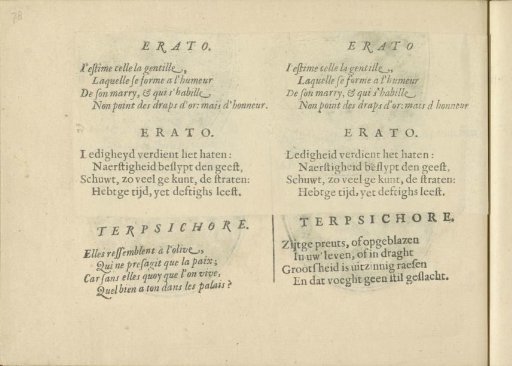 78
ERATO.
I'estime celle la gentille,
Laquelle se forme a l'humeur
De son marry, & qui s'habille
Non point des draps d'or: mais d'honneur.
ERATO.
Ledigheyd verdient het haten:
Naerstigheid beslypt den geest,
Schuwt, zo veel ge kunt, de straten:
Hebt ge tijd, yet destighs leest.
TERPSICHORE.
Elles ressemblent à l'olive,
Qui ne presagit que la paix;
Car sans elles quoy que l'on vive,
Quel bien a ton dans les palais?
ERATO
I'estime celle la gentille,
Laquelle se forme a l'humeur
De son marry, & qui s'habille
Non point des draps d'or: mais d honneur
ERATO.
Ledigheid verdient het haten:
Naerstigheid beslypt den geest,
Schuwt, zo veel ge kunt, de straten:
Hebtge tijd, yet deftighs leest.
TERPSICHORE.
Zijtge preuts, of opgeblazen
In uw' leven, of in draght
Grootsheid is uitzinnig raesen
En dat voeght geen stil geslacht.